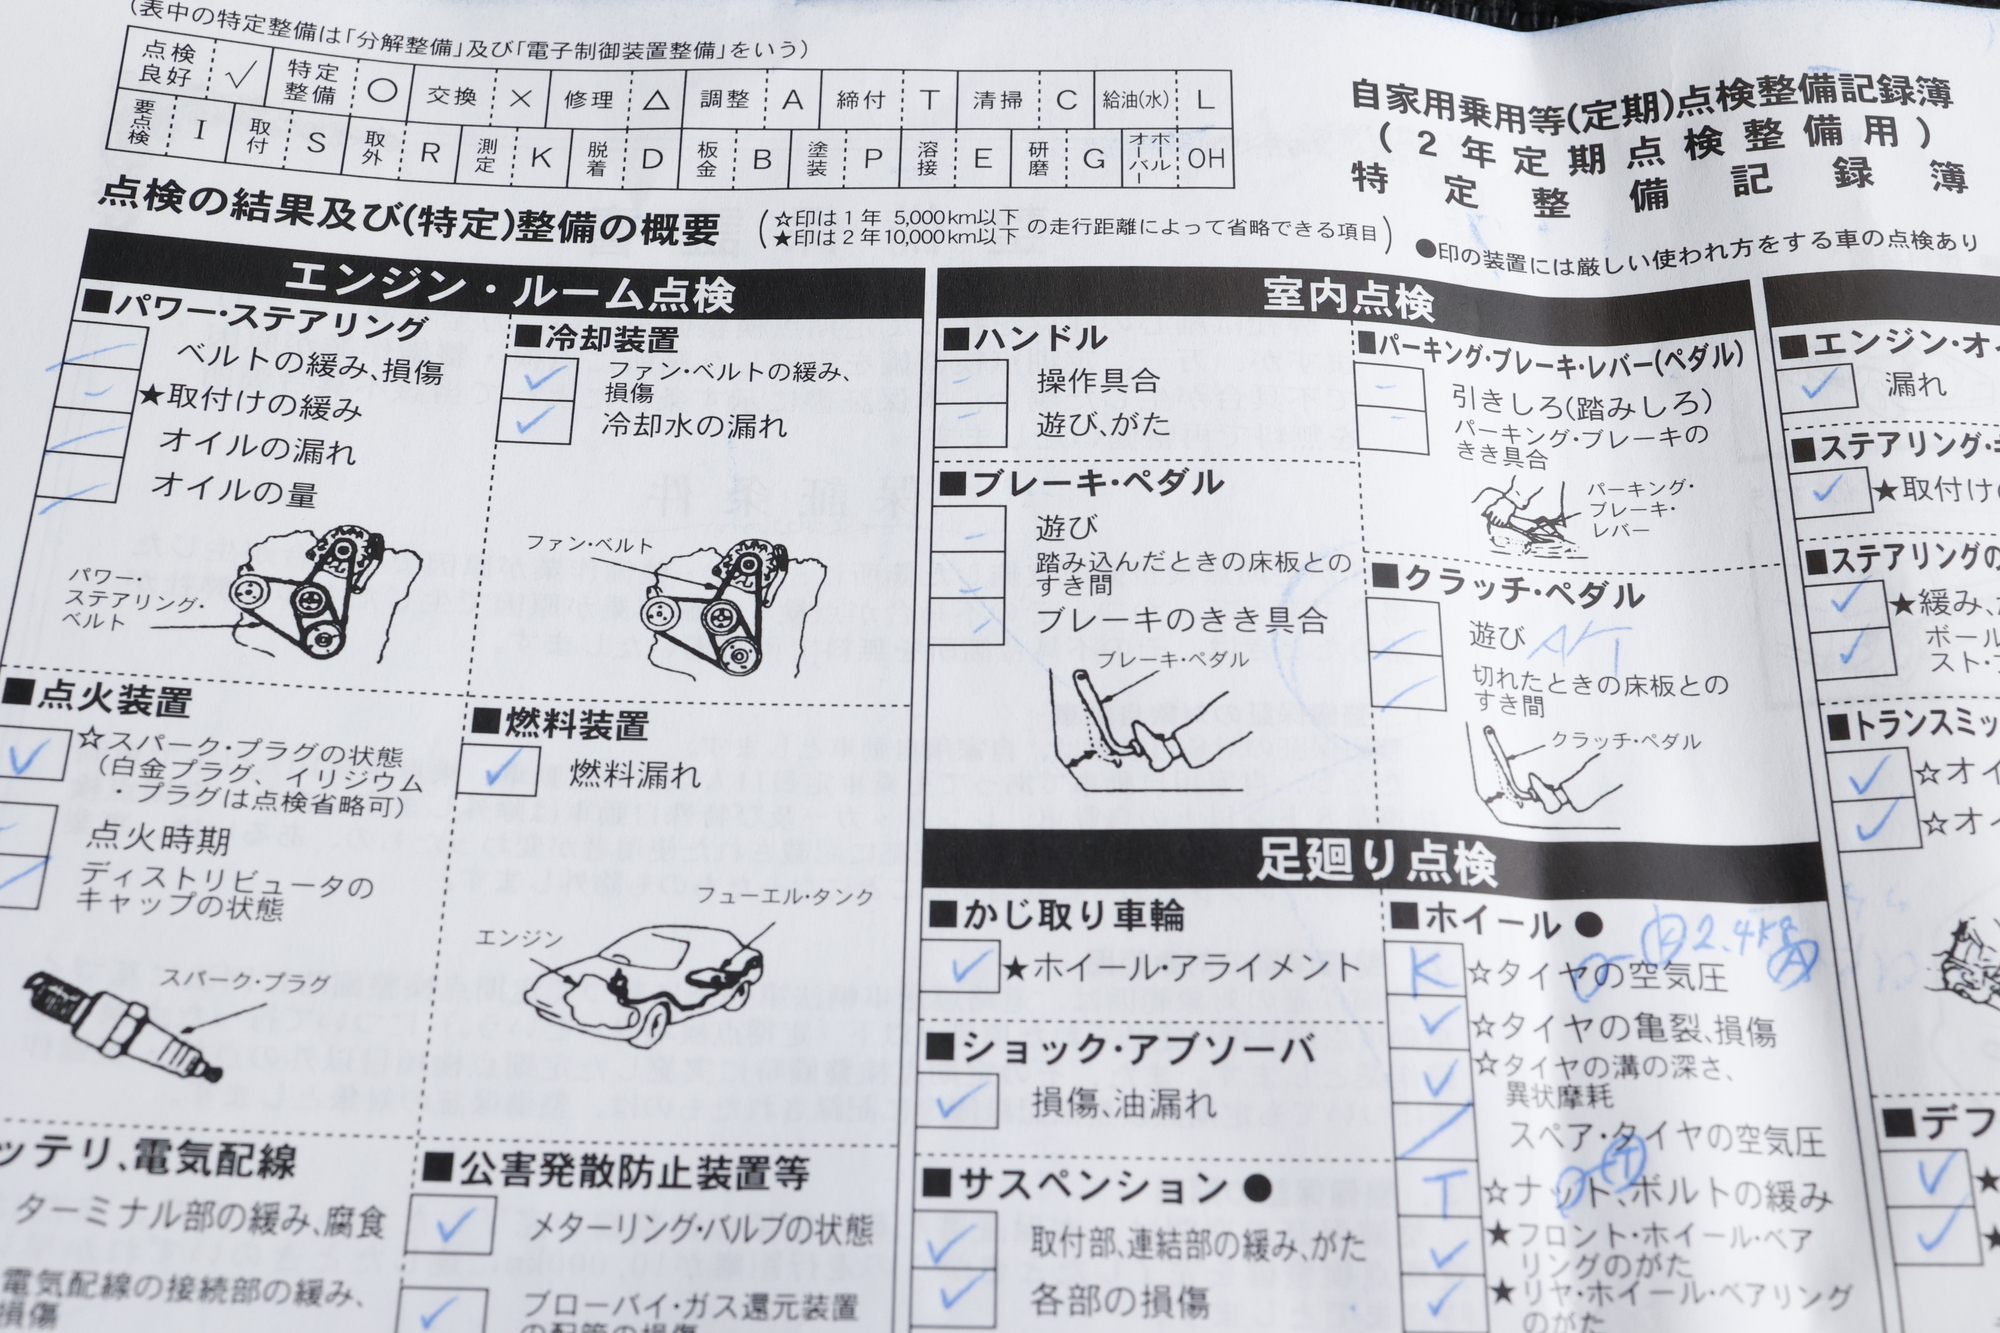 (表中の特定整備は「分解整備」及び「電子制御装置整備」をいう)
点検良好 √ 特定整備 ○ 交換 × 修理 △ 調整 A 締付 T 清掃 C 給油(水) L
要点検 I 取付 S 取外 R 測定 K 脱着 D 板金 B 塗装 P 溶接 E 研磨 G オーバーホール OH
自家用乗用等(定期)点検整備記録簿
(2年定期点検整備用)
特定整備記録簿
点検の結果及び(特定)整備の概要
(☆印は1年 5,000km以下
★印は2年10,000km以下 の走行距離によって省略できる項目)
●印の装置には厳しい使われ方をする車の点検あり
エンジン・ルーム点検
■パワー・ステアリング
ベルトの緩み、損傷
★取付けの緩み
オイルの漏れ
オイルの量
パワー・
ステアリング・
ベルト
■冷却装置
ファン・ベルトの緩み、
損傷
冷却水の漏れ
ファン・ベルト
■点火装置
☆スパーク・プラグの状態
(白金プラグ、イリジウム
・プラグは点検省略可)
点火時期
ディストリビュータの
キャップの状態
スパーク・プラグ
■燃料装置
燃料漏れ
フューエル・タンク
エンジン
ッテリ、電気配線
ターミナル部の緩み、腐食
電気配線の接続部の緩み、
損傷
■公害発散防止装置等
メターリング・バルブの状態
ブローバイ・ガス還元装置
の配管の損傷
室内点検
■ハンドル
操作具合
遊び、がた
■ブレーキ・ペダル
遊び
踏み込んだときの床板との
すき間
ブレーキのきき具合
ブレーキ・ペダル
■パーキング・ブレーキ・レバー(ペダル)
引きしろ(踏みしろ)
パーキング・ブレーキの
きき具合
パーキング・
ブレーキ・
レバー
■クラッチ・ペダル
遊び A/T
切れたときの床板との
すき間
クラッチ・ペダル
足廻り点検
■かじ取り車輪
★ホイール・アライメント
■ショック・アブソーバ
損傷、油漏れ
■サスペンション●
取付部、連結部の緩み、がた
各部の損傷
■ホイール●
2.4kg
K ☆タイヤの空気圧
☆タイヤの亀裂、損傷
☆タイヤの溝の深さ、
異状摩耗
スペア・タイヤの空気圧
T ☆ナット、ボルトの緩み
★フロント・ホイール・ベア
リングのがた
★リヤ・ホイール・ベアリング
のがた
■エンジン・オイ
漏れ
■ステアリング・ギ
★取付け
■ステアリングの
★緩み、
ボール
スト・
■トランスミッ
☆オイ
☆オイ
■デフ
★
★